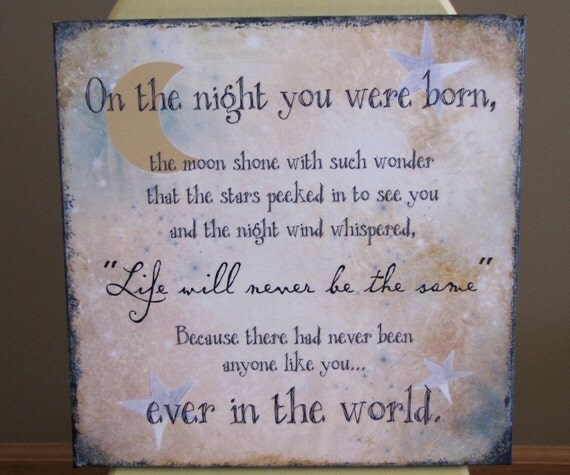 On the night you were born,
the moon shone with such wonder
that the stars peeked in to see you
and the night wind whispered,
"Life will never be the same"
Because there had never been
anyone like you...
ever in the world.